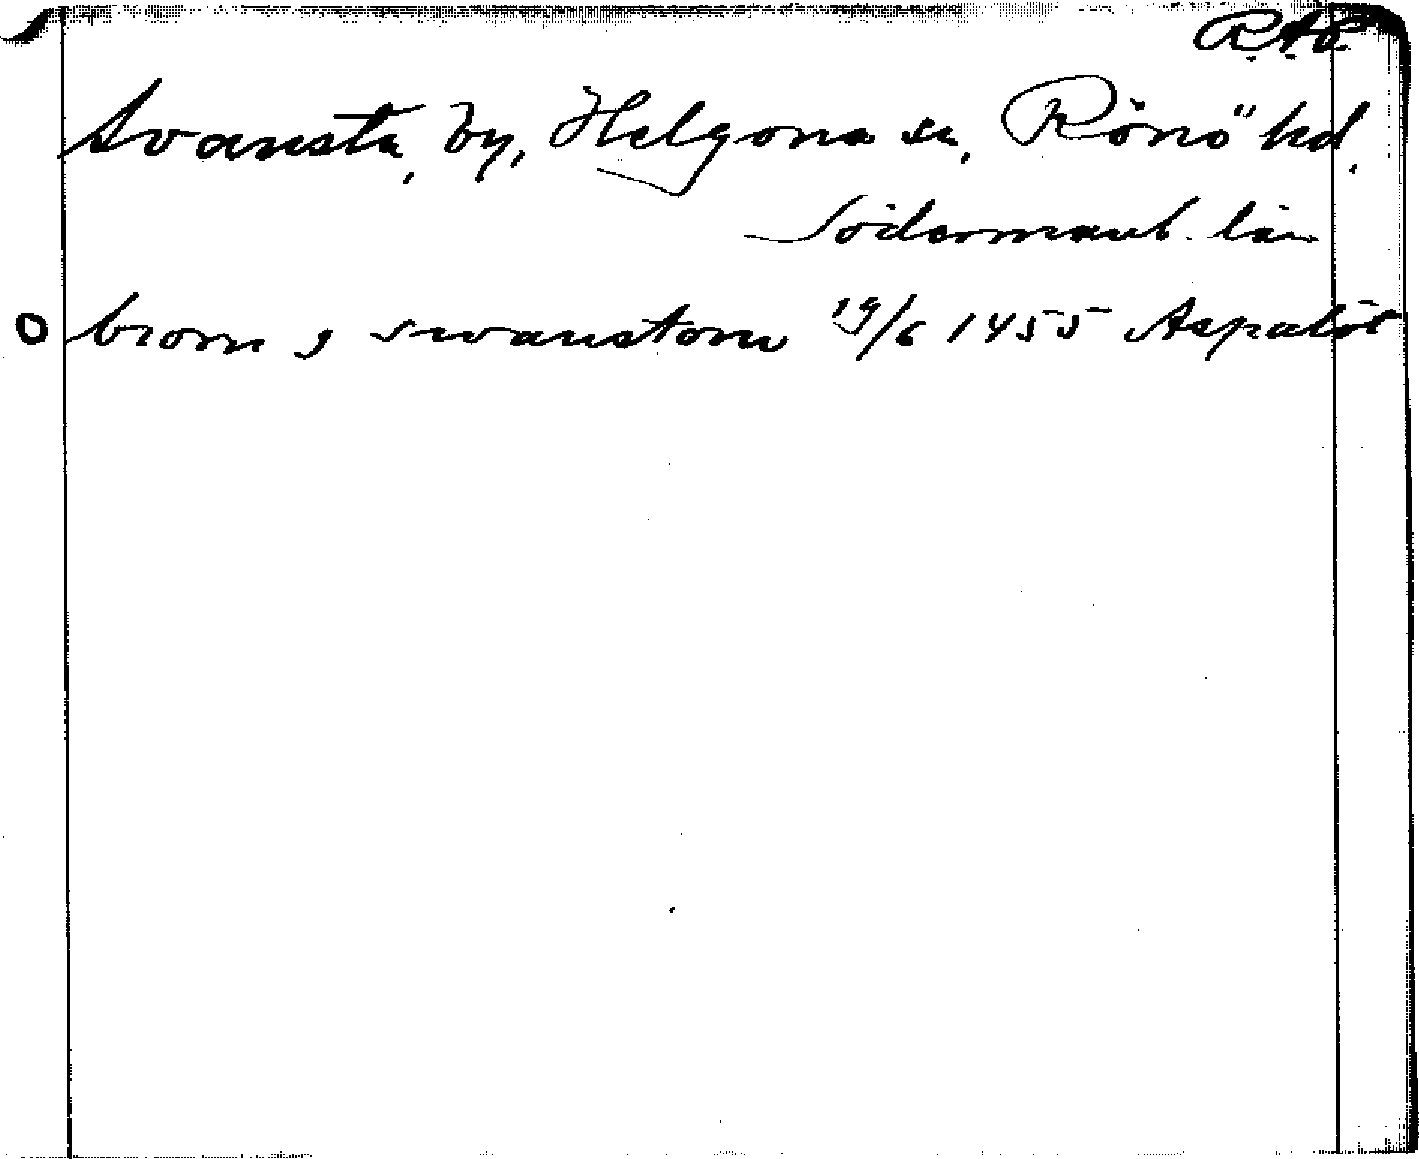 R.A.P.
Svansta, by, Helgona sn, Rönö hd.
Södermanl. län
biorn j swanstom 19/6 1455 Aspalöt